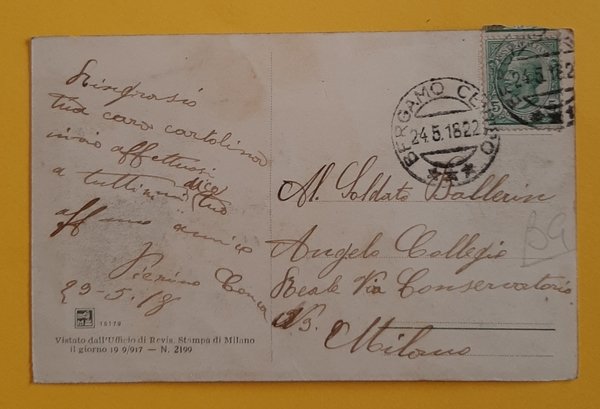 Ringrazio
tua cara cartolina
invio affettuosi
a tutti
aff mo amico
Pierino
23-5-18
15179
Vistato dall'Ufficio di Revis. Stampa di Milano
il giorno 19 9/917 — N. 2199
BERGAMO CENTRO
24.5.18 22
24.5.18 22
5
Al Soldato Ballerin
Angelo Collegio
Reale Via Conservatorio
Milano